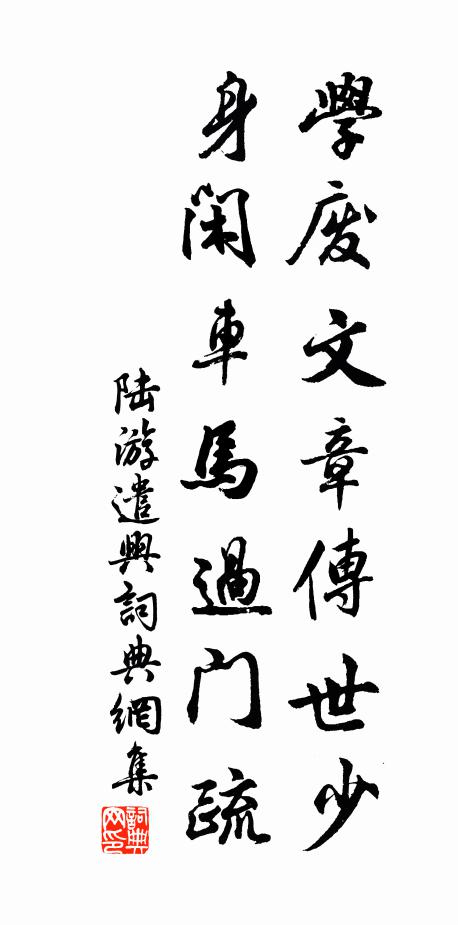 學廢文章傳世少
身閑車馬過門疏
陆游遣興詞典網集
詞典
网印